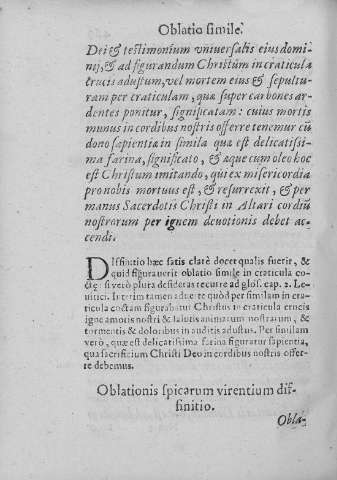 Oblatio similæ.
Dei & testimonium vniuersalis eius domi-
nij, & ad figurandum Christum in craticula
crucis adustum, vel mortem eius & sepultu-
ram per craticulam, quæ super carbones ar-
dentes ponitur, significatam: cuius mortis
munus in cordibus nostris offerre tenemur cū
dono sapientiæ in simila quæ est delicatissi-
ma farina, significato, & æque cum oleo hoc
est Christum imitando, qui ex misericordia
pro nobis mortuus est, & resurrexit, & per
manus Sacerdotis Christi in Altari cordiū
nostrorum per ignem deuotionis debet ac-
cendi.
DIffinitio hæc satis clarè docet qualis fuerit, &
quid figurauerit oblatio similæ in craticula co-
ctę: si verò plura desideras recurre ad glos. cap. 2. Le-
uitici. Interim tamen aduerte quòd per similam in cra-
ticula coctam figurabatur Christus in craticula crucis
igne amoris nostri & salutis animarum nostrarum, &
tormentis & doloribus in auditis adustus. Per similam
verò, quæ est delicatissima farina figuratur sapientia,
qua sacrificium Christi Deo in cordibus nostris offer-
re debemus.
Oblationis spicarum virentium dif-
finitio.
Oblá-